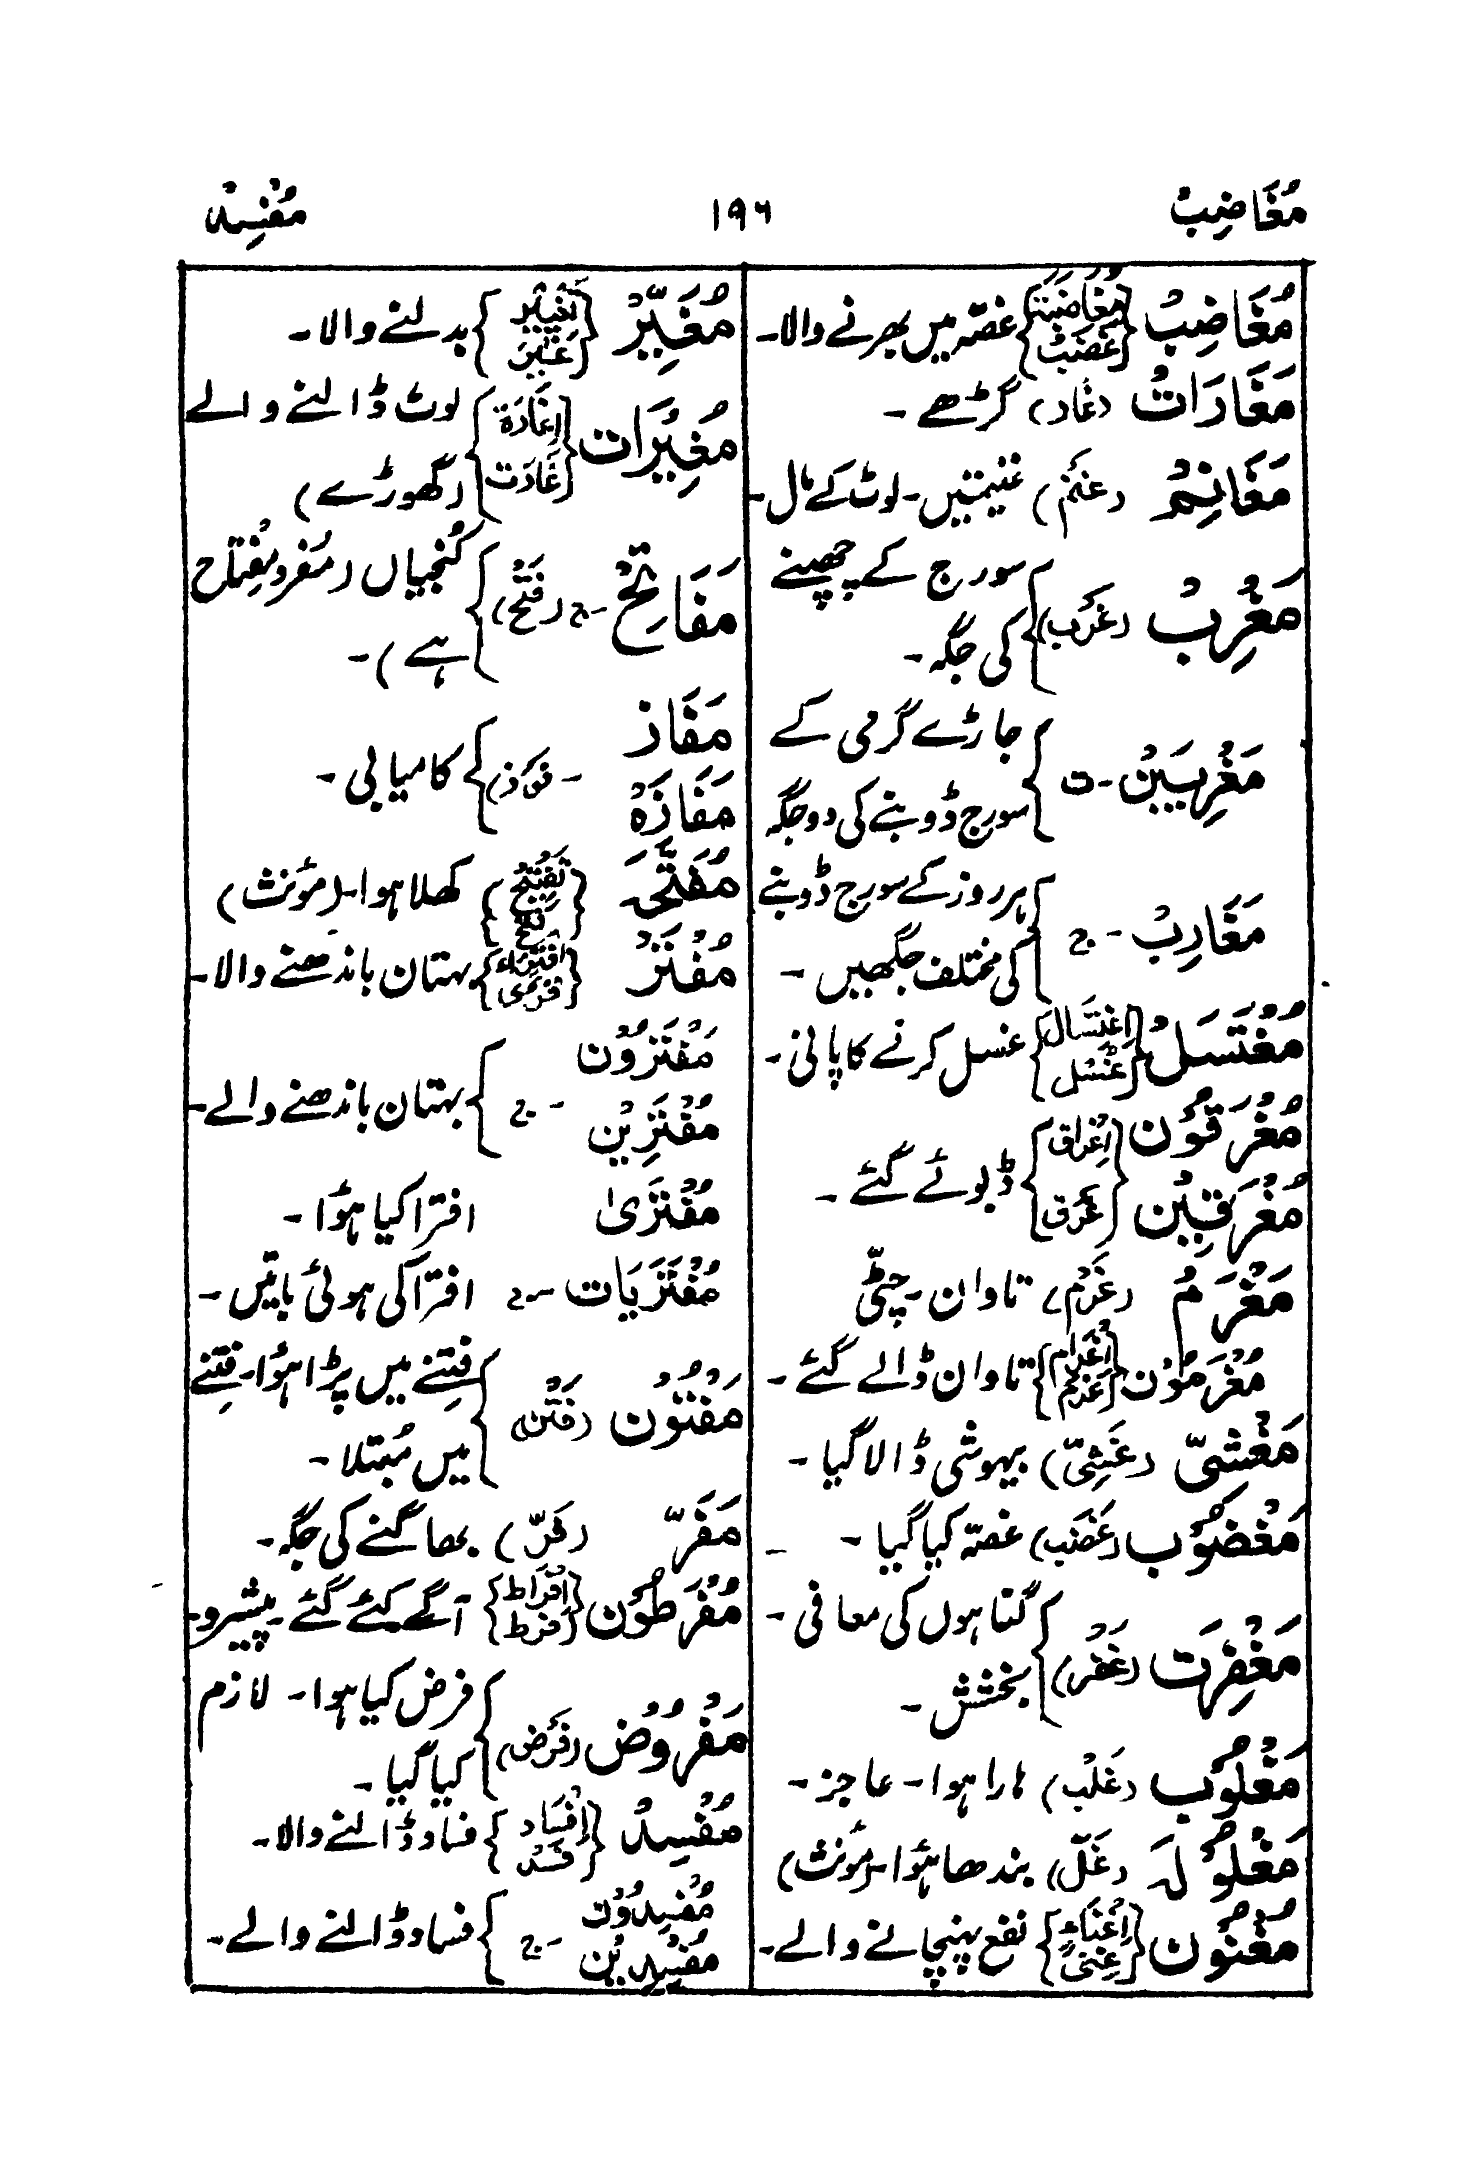 مُغَاضِبْ ۱۹۶ مُفْسِدْ
مُغَاضِبْ {مُغَاضَبَۃ غَضَبْ} غصّہ میں بھرنے والا۔
مَغَارَاتْ (غار) گڑھے۔
مَغَانِمْ (غنم) غنیمتیں۔ لوٹ کے مال۔
مَغْرِبْ (غرب) سورج کے چھپنے
کی جگہ۔
مَغْرِبَيْن۔ت جاڑے گرمی کے
سورج ڈوبنے کی دو جگہ
مَغَارِبْ۔ ج ہر روز کے سورج ڈوبنے
کی مختلف جگہیں۔
مُغْتَسَلْ {اِغْتِسَال غُسْل} غسل کرنے کا پانی۔
مُغْرَقُوْن {اِغْراق
مُغْرَقِيْن غَرَق} ڈبوئے گئے۔
مَغْرَمْ (غَرْم) تاوان۔ چٹّی
مُغْرَمُوْن {اِغْرَام غرم} تاوان ڈالے گئے۔
مَغْشِیّ (غَشِیّ) بیہوشی ڈالا گیا۔
مَغْضُوْب (غَضَب) غصّہ کیا گیا۔
مَغْفِرَت (غَفْر) گناہوں کی معافی۔
بخشش۔
مَغْلُوْب (غَلَبْ) ہارا ہوا۔ عاجز۔
مَغْلُوْلَہ (غَلّ) بندھا ہؤا۔ (مؤنث)
مُغْنُوْن {اِغْنَاءْ غِنیٰ} نفع پہنچانے والے۔
مُغَيِّرْ {تَغْيِيْر غَيْر} بدلنے والا۔
مُغِيْرَات {اِغَارَۃ غَارَت} لوٹ ڈالنے والے
(گھوڑے)
مَفَاتِحْ۔ج (فَتْح) کُنجیاں (مفرد مِفْتَاح
ہے)۔
مَفَاز
مَفَازَہْ ۔ (فوز) کامیابی۔
مُفَتَّحَہ {تَفْتِيْحْ فتح} کھلا ہوا۔ (مؤنث)
مُفْتَرْ {اِفْتِرَاء فَرْی} بہتان باندھنے والا۔
مُفْتَرُوْن
مُفْتَرِيْن ۔ج بہتان باندھنے والے۔
مُفْتَرَیٰ افترا کیا ہؤا۔
مُفْتَرَيَات ۔ج افترا کی ہوئی باتیں۔
مَفْتُوْن (فَتْن) فِتنے میں پڑا ہؤا۔ فِتنے
میں مُبتلا۔
مَفَرّ (فَرّ) بھاگنے کی جگہ۔
مُفْرَطُوْن {اِفْرَاط فرط} آگے کئے گئے۔ پیشرو۔
مَفْرُوْض (فَرْض) فرض کیا ہوا۔ لازم
کیا گیا۔
مُفْسِدْ {اِفْسَاد فسد} فساد ڈالنے والا۔
مُفْسِدُوْن
مُفْسِدِيْن ۔ج فساد ڈالنے والے۔